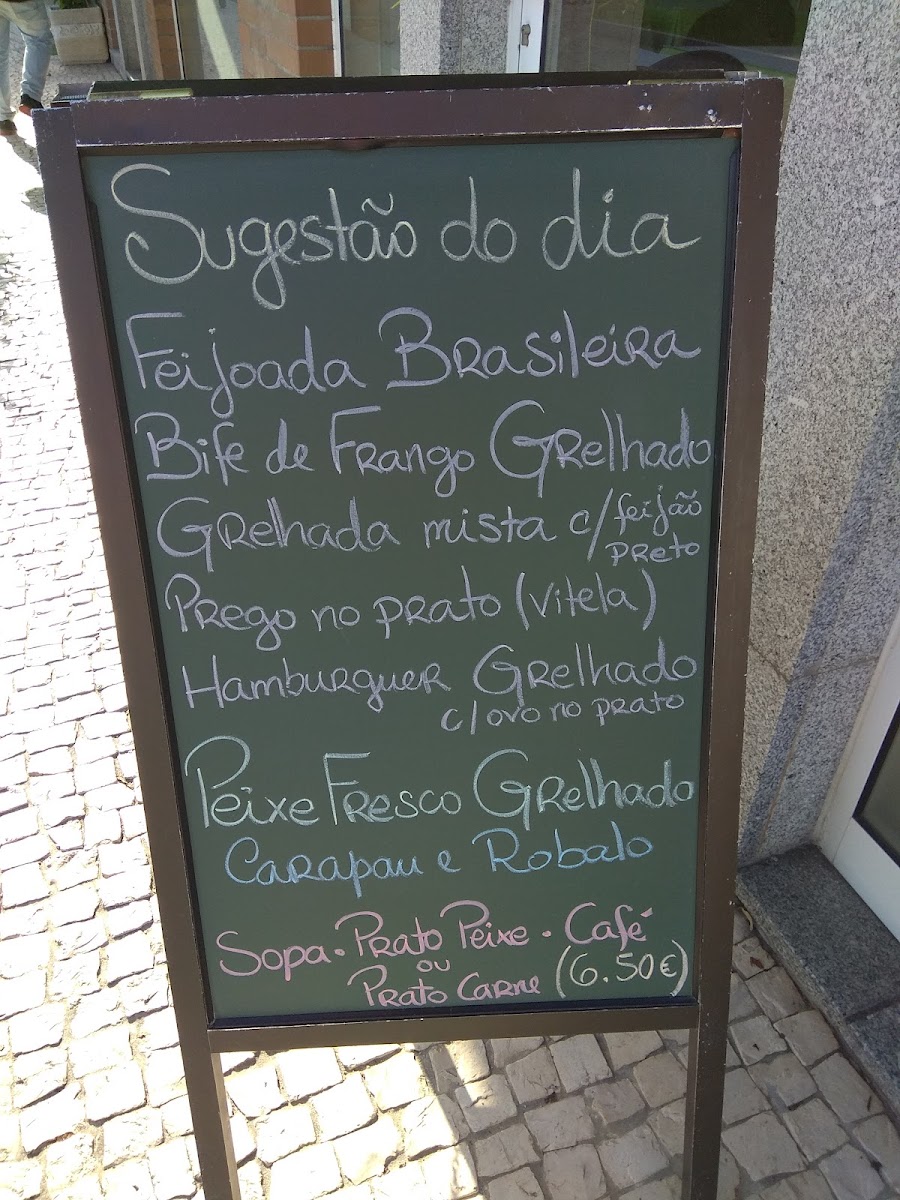 Sugestão do dia
Feijoada Brasileira
Bife de Frango Grelhado
Grelhada mista c/ feijão
preto
Prego no prato (vitela)
Hamburguer Grelhado
c/ ovo no prato
Peixe Fresco Grelhado
Carapau e Robalo
Sopa . Prato Peixe . Café
ou
Prato Carne (6.50€)